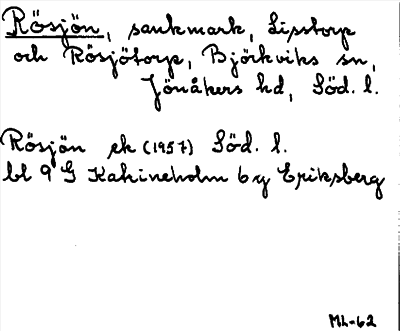 Rösjön, sankmark, Lisstorp
och Rösjötorp, Björkviks sn,
Jönåkers hd, Söd. l.
Rösjön ek (1957) Söd. l.
bl 9 G Katrineholm 6 y Eriksberg
ML-62